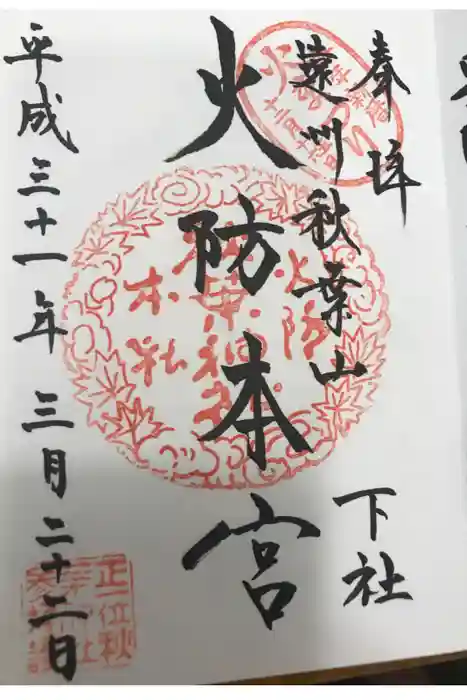 奉拝
遠州秋葉山
下社
火防本宮
平成三十一年三月二十二日
火防
秋葉神社
本社
正一位秋